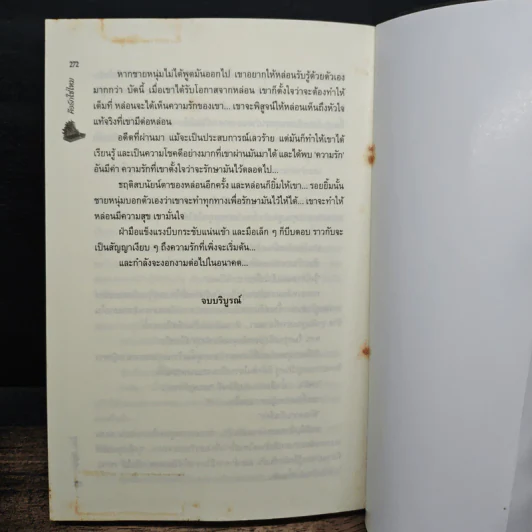 272
คือรักใช่ไหม
หากชายหนุ่มไม่ได้พูดมันออกไป เขาอยากให้หล่อนรับรู้ด้วยตัวเอง
มากกว่า บัดนี้ เมื่อเขาได้รับโอกาสจากหล่อน เขาก็ตั้งใจว่าจะต้องทำให้
เต็มที่ หล่อนจะได้เห็นความรักของเขา... เขาจะพิสูจน์ให้หล่อนเห็นถึงหัวใจ
แท้จริงที่เขามีต่อหล่อน
อดีตที่ผ่านมา แม้จะเป็นประสบการณ์เลวร้าย แต่มันก็ทำให้เขาได้
เรียนรู้ และเป็นความโชคดีอย่างมากที่เขาผ่านมันมาได้ และได้พบ 'ความรัก'
อันมีค่า ความรักที่เขาตั้งใจว่าจะรักษามันไว้ตลอดไป...
ชฤติสบนัยน์ตาของหล่อนอีกครั้ง และหล่อนก็ยิ้มให้เขา... รอยยิ้มนั้น
ชายหนุ่มบอกตัวเองว่าเขาจะทำทุกทางเพื่อรักษามันไว้ให้ได้... เขาจะทำให้
หล่อนมีความสุข เขามั่นใจ
ฝ่ามือแข็งแรงบีบกระชับแน่นเข้า และมือเล็ก ๆ ก็บีบตอบ ราวกับจะ
เป็นสัญญาเงียบ ๆ ถึงความรักที่เพิ่งจะเริ่มต้น...
และกำลังจะงอกงามต่อไปในอนาคต...
จบบริบูรณ์